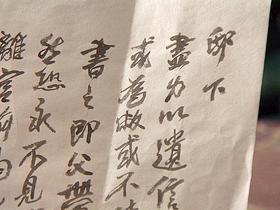 邸下
盡力以遺信
或為敝或不
書之即父
然恐永不見
離宮